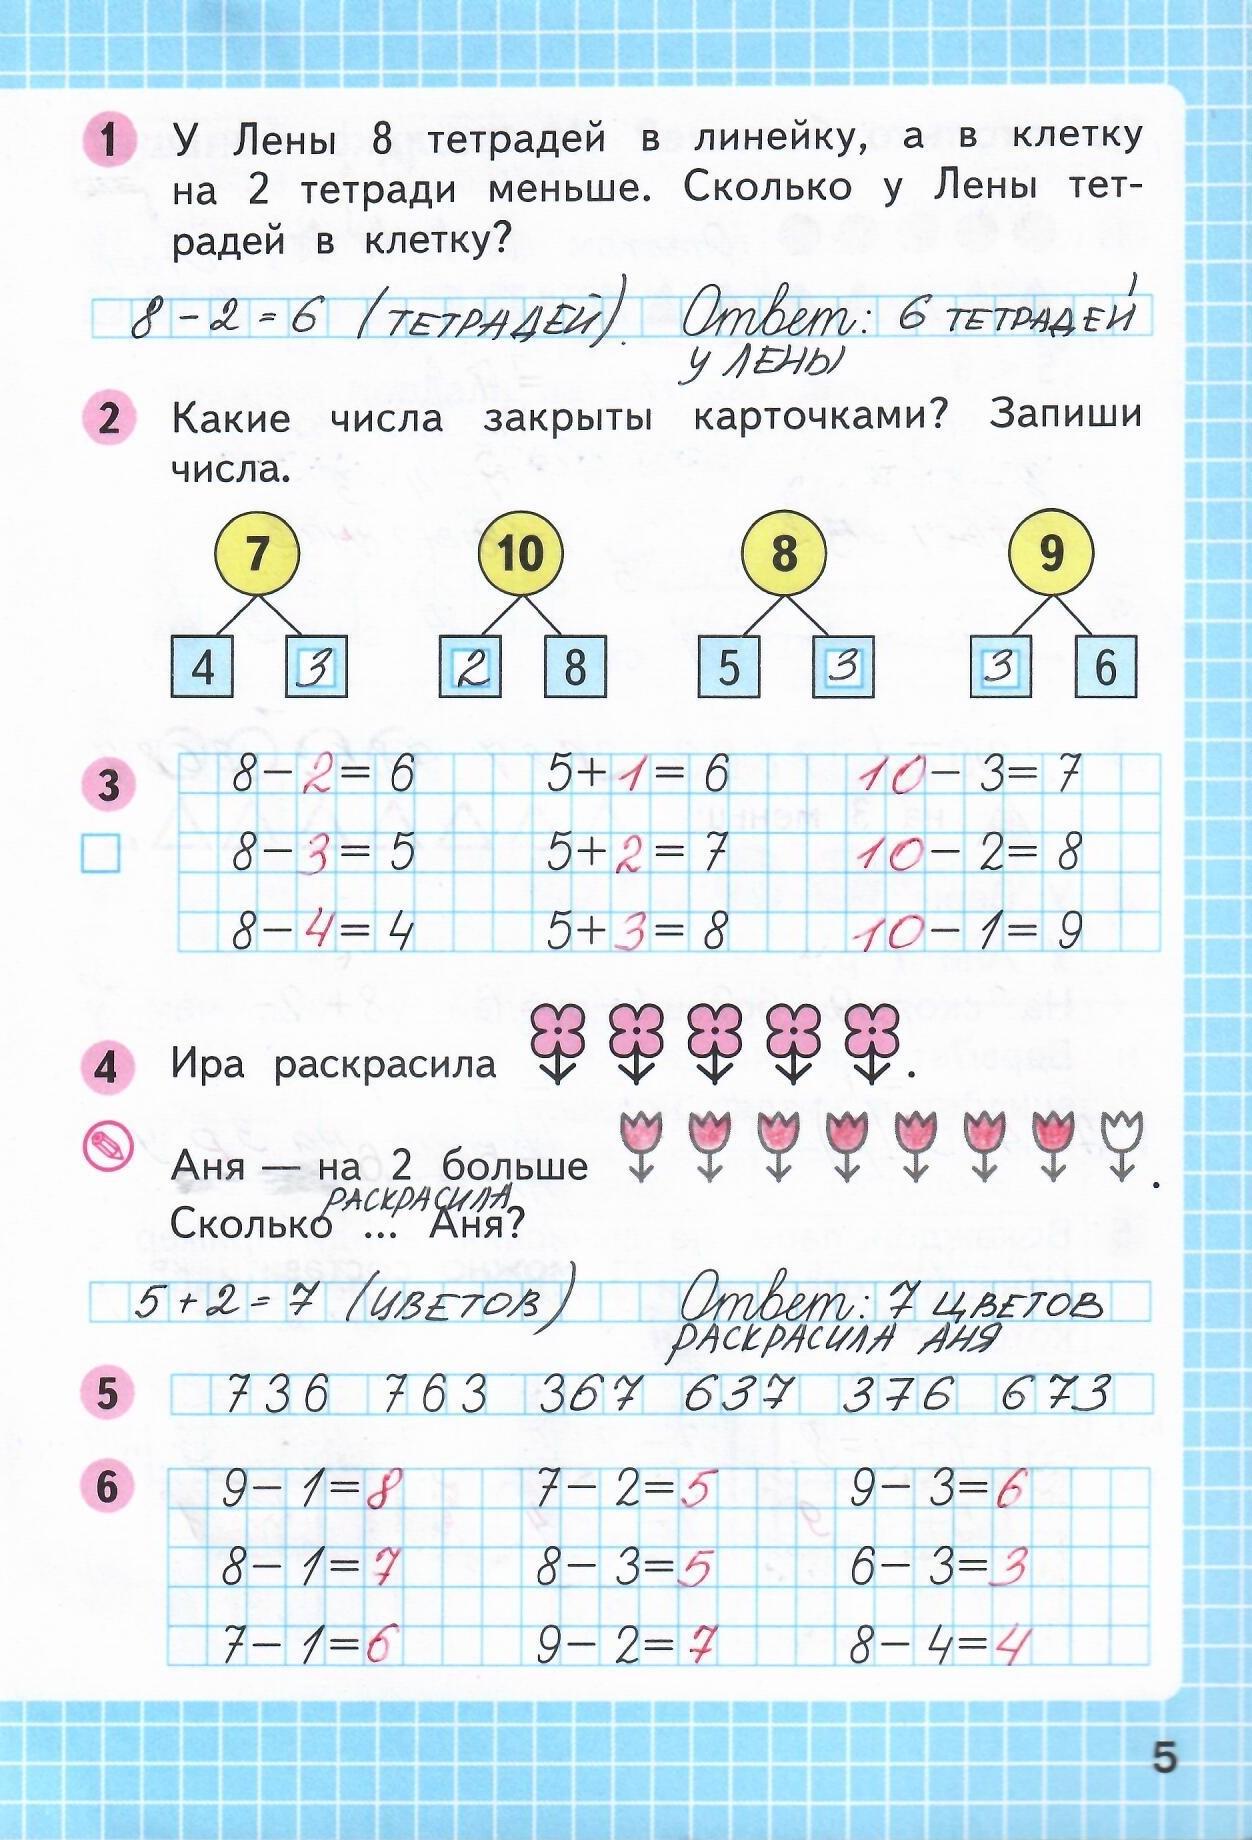 1 У Лены 8 тетрадей в линейку, а в клетку
на 2 тетради меньше. Сколько у Лены тет-
радей в клетку?
8 - 2 = 6 (ТЕТРАДЕЙ). Ответ: 6 ТЕТРАДЕЙ
У ЛЕНЫ
2 Какие числа закрыты карточками? Запиши
числа.
7 10 8 9
4 3 2 8 5 3 3 6
3 8 − 2 = 6 5 + 1 = 6 10 − 3 = 7
8 − 3 = 5 5 + 2 = 7 10 − 2 = 8
8 − 4 = 4 5 + 3 = 8 10 − 1 = 9
4 Ира раскрасила .
Аня — на 2 больше .
РАСКРАСИЛА
Сколько ... Аня?
5 + 2 = 7 (ЦВЕТОВ) Ответ: 7 ЦВЕТОВ
РАСКРАСИЛА АНЯ
5 736 763 367 637 376 673
6 9 − 1 = 8 7 − 2 = 5 9 − 3 = 6
8 − 1 = 7 8 − 3 = 5 6 − 3 = 3
7 − 1 = 6 9 − 2 = 7 8 − 4 = 4
5